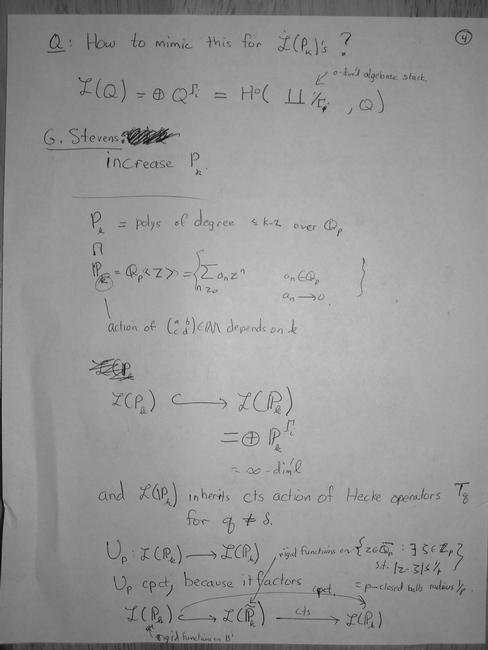 4
Q: How to mimic this for ℒ(P_k)'s ?
0-dim'l algebraic stack
ℒ(Q) = ⊕ Q^{Γ_i} = H⁰( ∐ */Γ_i , Q)
G. Stevens:
increase P_k.
P_k = polys of degree ≤ k-2 over Q_p
∩
ℙ_k = Q_p<z> = { Σ_{n≥0} a_n z^n  a_n ∈ Q_p
a_n → 0 }
action of (a b c d) ∈ M depends on k
ℒ(P_k) ↪ ℒ(ℙ_k)
= ⊕ ℙ_k^{Γ_i}
= ∞-dim'l
and ℒ(ℙ_k) inherits cts action of Hecke operators T_q
for q ≠ δ.
U_p : ℒ(ℙ_k) → ℒ(ℙ_k)
rigid functions on {z ∈ Q̄_p : ∃ ζ ∈ Z_p
s.t. |z-ζ| ≤ 1/p}
U_p cpct, because it factors
= p-closed balls radius 1/p.
cpct.
ℒ(ℙ_k) ↪ ℒ(ℙ̃_k) → cts ℒ(ℙ_k)
rigid functions on B¹